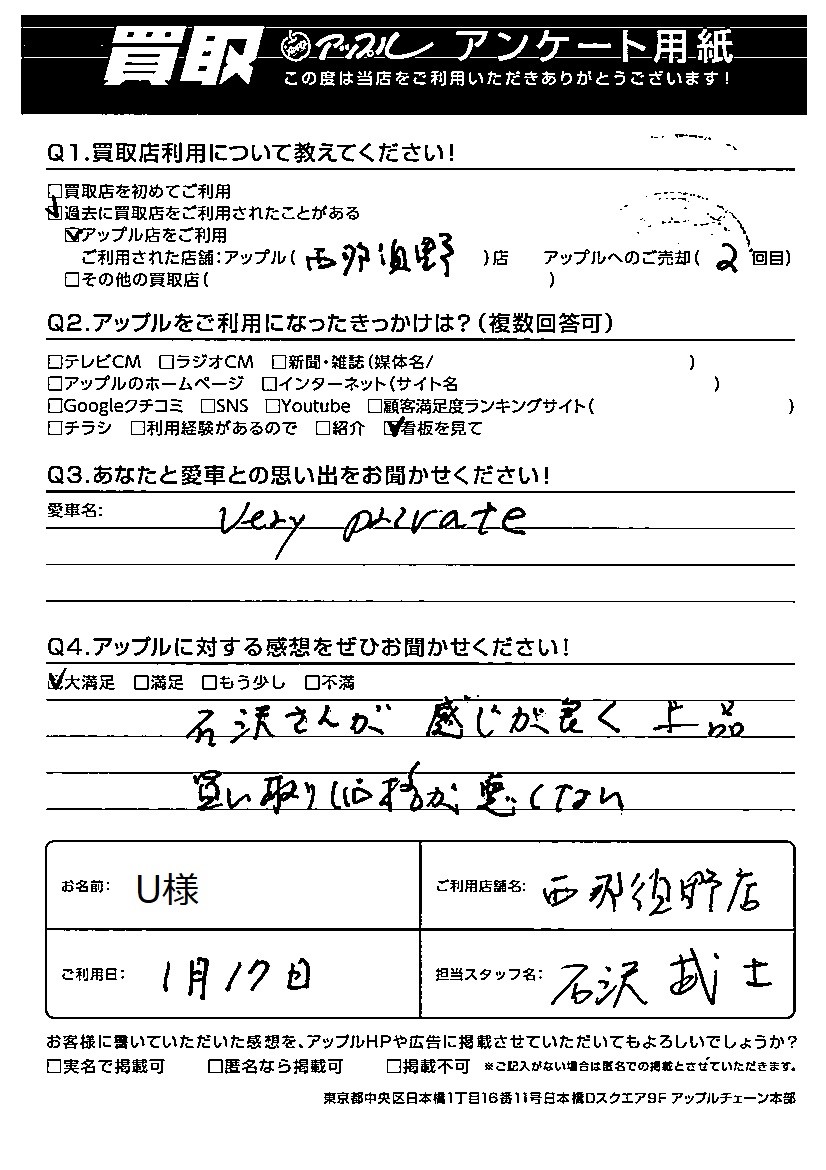 買取 アップル アンケート用紙
この度は当店をご利用いただきありがとうございます!
Q1.買取店利用について教えてください!
□買取店を初めてご利用
☑過去に買取店をご利用されたことがある
☑アップル店をご利用
ご利用された店舗:アップル( 西那須野 )店 アップルへのご売却( 2 回目)
□その他の買取店( )
Q2.アップルをご利用になったきっかけは?(複数回答可)
□テレビCM □ラジオCM □新聞・雑誌(媒体名/ )
□アップルのホームページ □インターネット(サイト名 )
□Googleクチコミ □SNS □Youtube □顧客満足度ランキングサイト( )
□チラシ □利用経験があるので □紹介 ☑看板を見て
Q3.あなたと愛車との思い出をお聞かせください!
愛車名: Very private
Q4.アップルに対する感想をぜひお聞かせください!
☑大満足 □満足 □もう少し □不満
石沢さんが 感じが良く 上品
買い取り価格が悪くない
お名前: U様 ご利用店舗名: 西那須野店
ご利用日: 1月17日 担当スタッフ名: 石沢 武士
お客様に書いていただいた感想を、アップルHPや広告に掲載させていただいてもよろしいでしょうか?
□実名で掲載可 □匿名なら掲載可 □掲載不可 ※ご記入がない場合は匿名での掲載とさせていただきます。
東京都中央区日本橋1丁目16番11号日本橋Dスクエア9F アップルチェーン本部